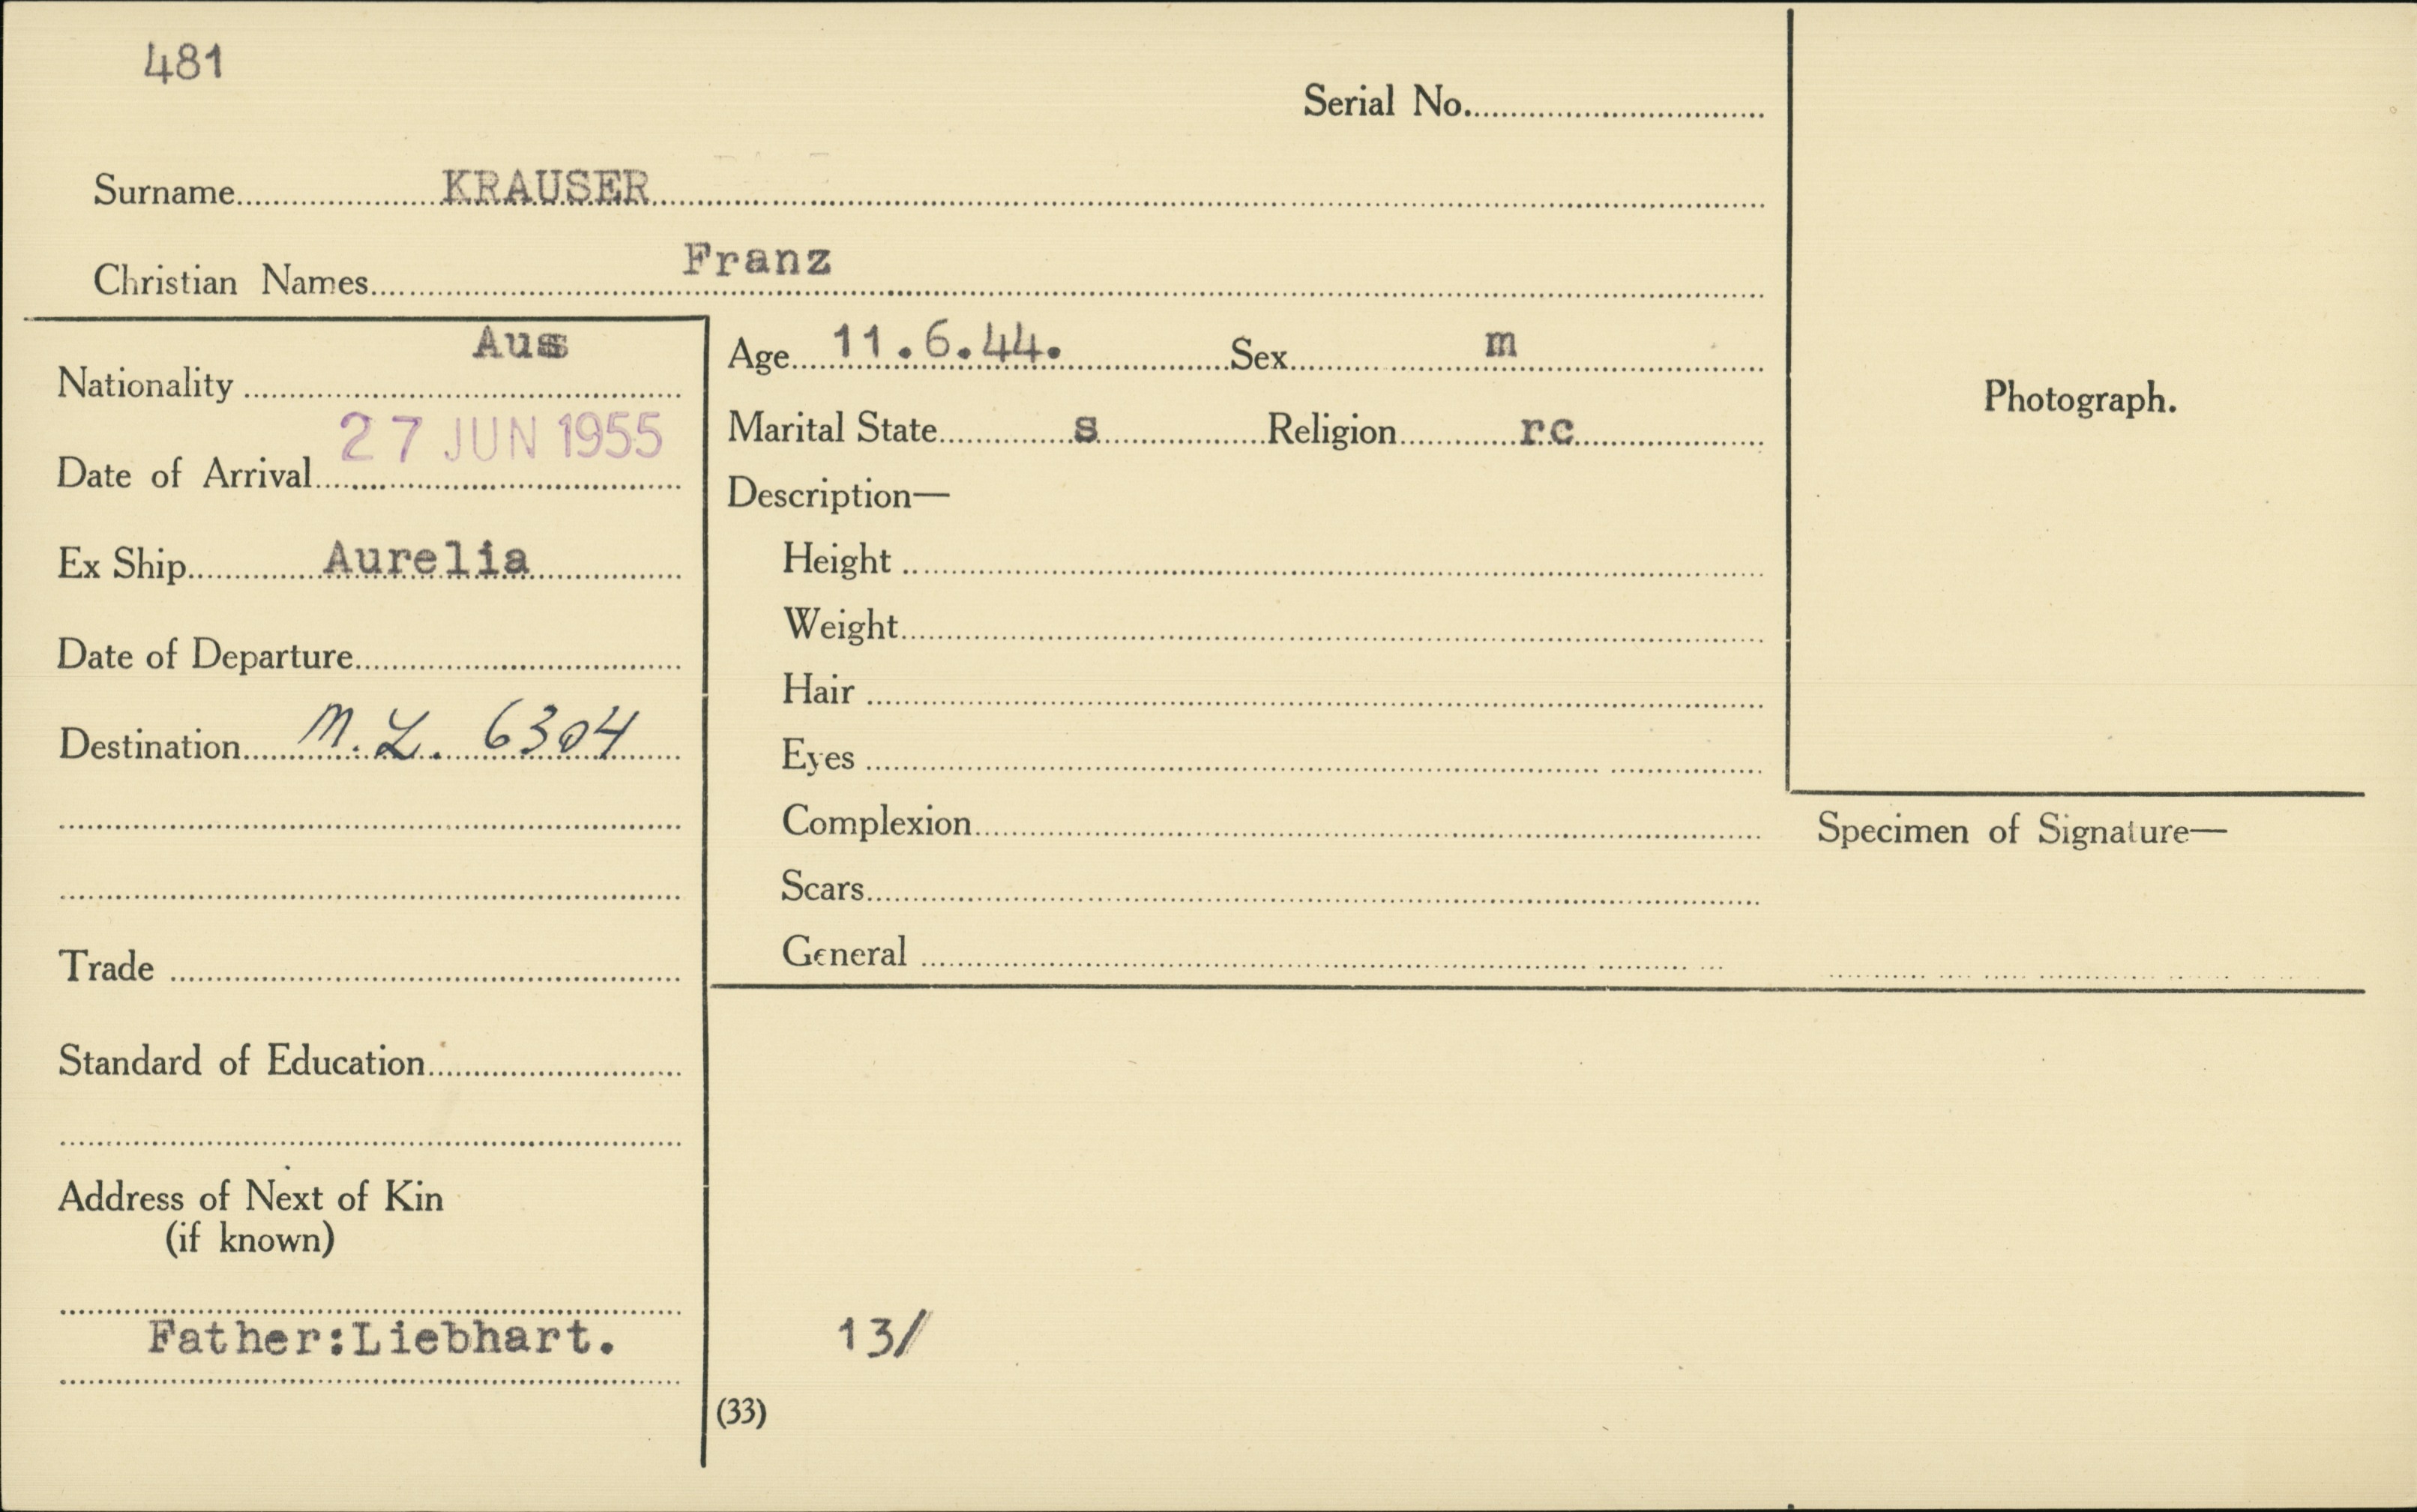 481
Serial No.
Surname KRAUSER
Christian Names Franz
Nationality Aus
Date of Arrival 27 JUN 1955
Ex Ship Aurelia
Date of Departure
Destination M.L. 6304
Trade
Standard of Education
Address of Next of Kin
(if known)
Father:Liebhart.
Age 11.6.44. Sex m
Marital State s Religion rc
Description—
Height
Weight
Hair
Eyes
Complexion
Scars
General
13/
(33)
Photograph.
Specimen of Signature—